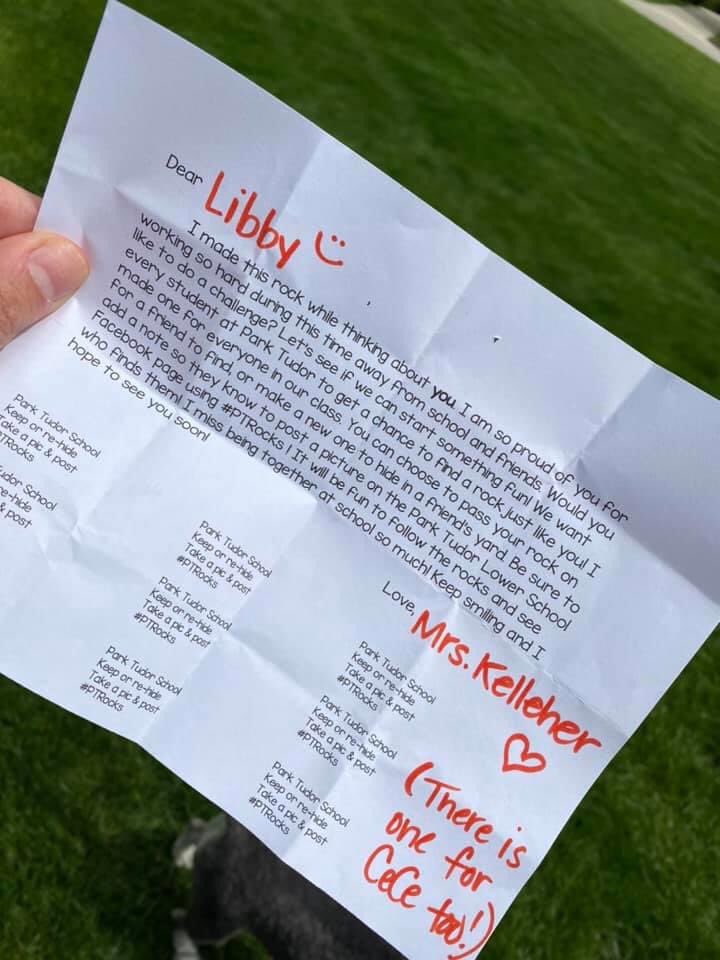 Dear Libby
I made this rock while thinking about you. I am so proud of you for
working so hard during this time away from school and friends. Would you
like to do a challenge? Let's see if we can start something fun! We want
every student at Park Tudor to get a chance to find a rock just like you! I
made one for everyone in our class. You can choose to pass your rock on
for a friend to find, or make a new one to hide in a friend's yard. Be sure to
add a note so they know to post a picture on the Park Tudor Lower School
Facebook page using #PTRocks ! It will be fun to follow the rocks and see
who finds them! I miss being together at school so much! Keep smiling and I
hope to see you soon!
Love,
Mrs. Kelleher
(There is
one for
CeCe too!)
Park Tudor School
Keep or re-hide
Take a pic & post
PTRocks
School
re-hide
& post
Park Tudor School
Keep or re-hide
Take a pic & post
#PTRocks
Park Tudor School
Keep or re-hide
Take a pic & post
#PTRocks
Park Tudor School
Keep or re-hide
Take a pic & post
#PTRocks
Park Tudor School
Keep or re-hide
Take a pic & post
#PTRocks
Park Tudor School
Keep or re-hide
Take a pic & post
#PTRocks
Park Tudor School
Keep or re-hide
Take a pic & post
#PTRocks